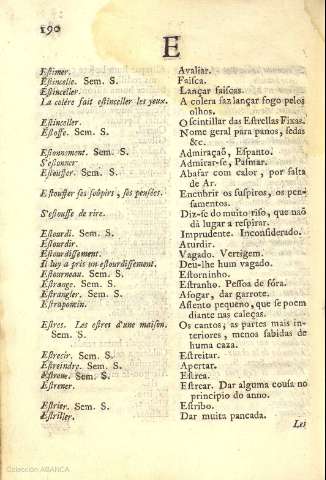 190
E
Estimer. Avaliar.
Estincelle. Sem. S. Faisca.
Estinceller. Lançar faiscas.
La colére fait estinceller les yeux. A colera faz lançar fogo pelos
olhos.
Estinceller. O scintillar das Estrellas Fixas.
Estoffe. Sem. S. Nome geral para panos, sedas
&c.
Estonnement. Sem. S. Admiraçaõ, Espanto.
S'estonner Admirar-se, Pasmar.
Estouffer. Sem. S. Abafar com calor, por falta
de Ar.
Estouffer ses soûpirs, ses pensées. Encubrir os suspiros, os pen-
samentos.
S'estouffe de rire. Diz-se do muito riso, que naõ
dá lugar a respirar.
Estourdi. Sem. S. Imprudente. Inconsiderado.
Estourdir. Aturdir.
Estourdissement. Vagado. Vertigem.
Il luy a pris un estourdissement. Deu-lhe hum vagado.
Estourneau. Sem. S. Estorninho.
Estrange. Sem. S. Estranho. Pessoa de fóra.
Estrangler. Sem. S. Afogar, dar garrote.
Estrapontin. Assento pequeno, que se poem
diante nas caleças.
Estres. Les estres d'une maison. Os cantos, as partes mais in-
Sem. S. teriores, menos sabidas de
huma caza.
Estrecir. Sem. S. Estreitar.
Estreindre. Sem. S. Apertar.
Estrene. Sem. S. Estrea.
Estrener. Estrear. Dar alguma cousa no
principio do anno.
Estrier. Sem. S. Estribo.
Estriller. Dar muita pancada.
Lei
Colección ABANCA